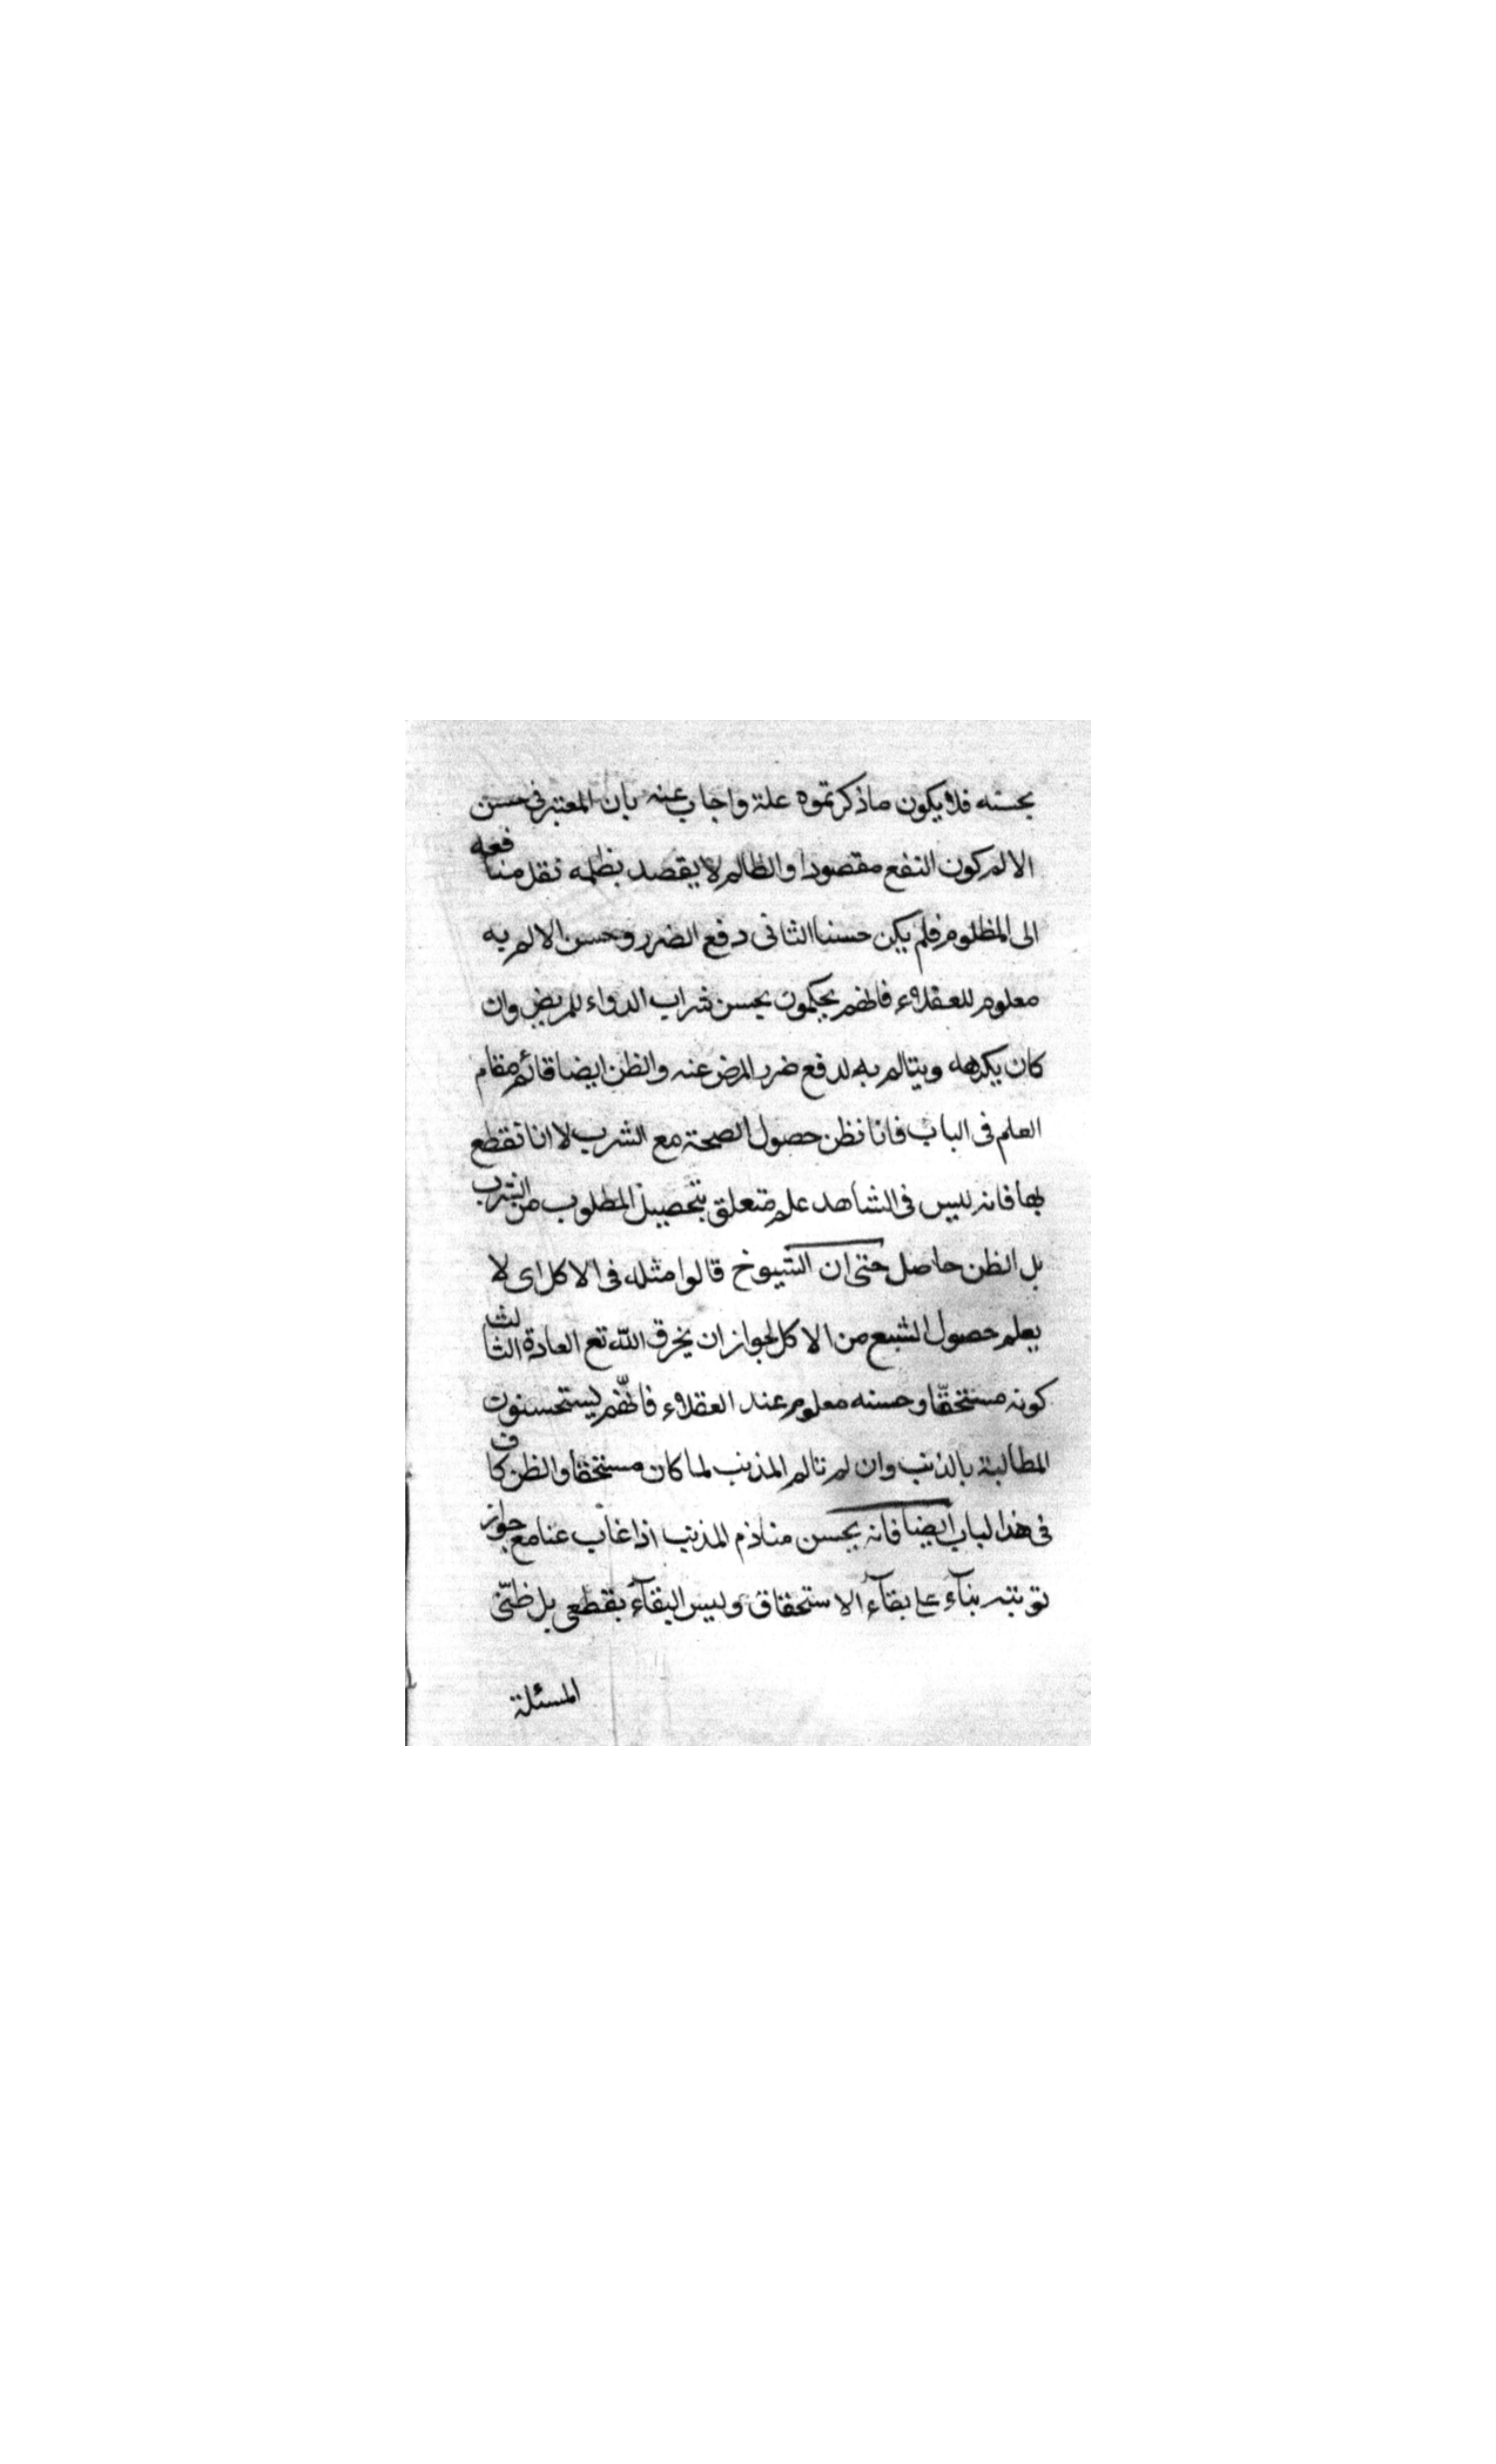 بحسنه فلا يكون ما ذكرتموه علة واجاب عنه بان المعتبر فى حسن
الالم كون النفع مقصودا والظالم لا يقصد بظلمه نقل منافعه
الى المظلوم فلم يكن حسنا الثانى دفع الضرر وحسن الالم به
معلوم للعقلاء فانهم يحكمون بحسن شراب الدواء للمريض وان
كان يكرهه ويتالم به لدفع ضرر المرض عنه والظن ايضا قائم مقام
العلم فى الباب فانا نظن حصول الصحة مع الشرب لا انا نقطع
بها فانه ليس فى الشاهد علم متعلق بتحصيل المطلوب من الشرب
بل الظن حاصل حتى ان الشيوخ قالوا مثله فى الاكل اى لا
يعلم حصول الشبع من الاكل لجواز ان يخرق الله تع العادة الثالث
كونه مستحقّا وحسنه معلوم عند العقلاء فانّهم يستحسنون
المطالبة بالذنب وان لم تالم المذنب لما كان مستحقا والظن كاف
فى هذا الباب ايضا فانه يحسن منا ذم المذنب اذا غاب عنا مع جواز
توبته بنآء على بقآء الاستحقاق وليس البقآء بقطعى بل ظنّى
المسئلة